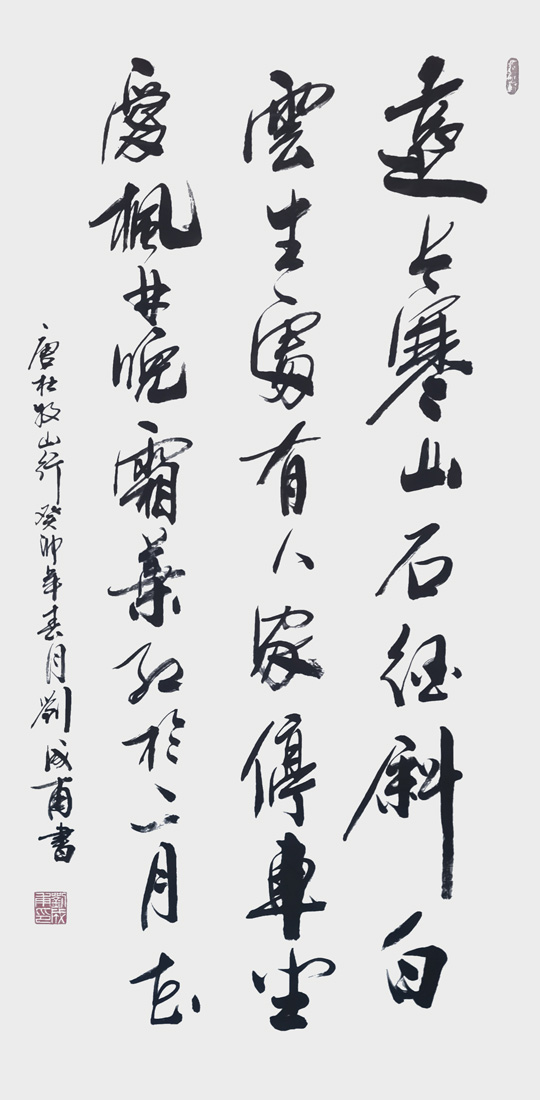 遠上寒山石徑斜白
雲生處有人家停車坐
愛楓林晚霜葉紅於二月花
唐杜牧山行癸卯年春月劉成甫書